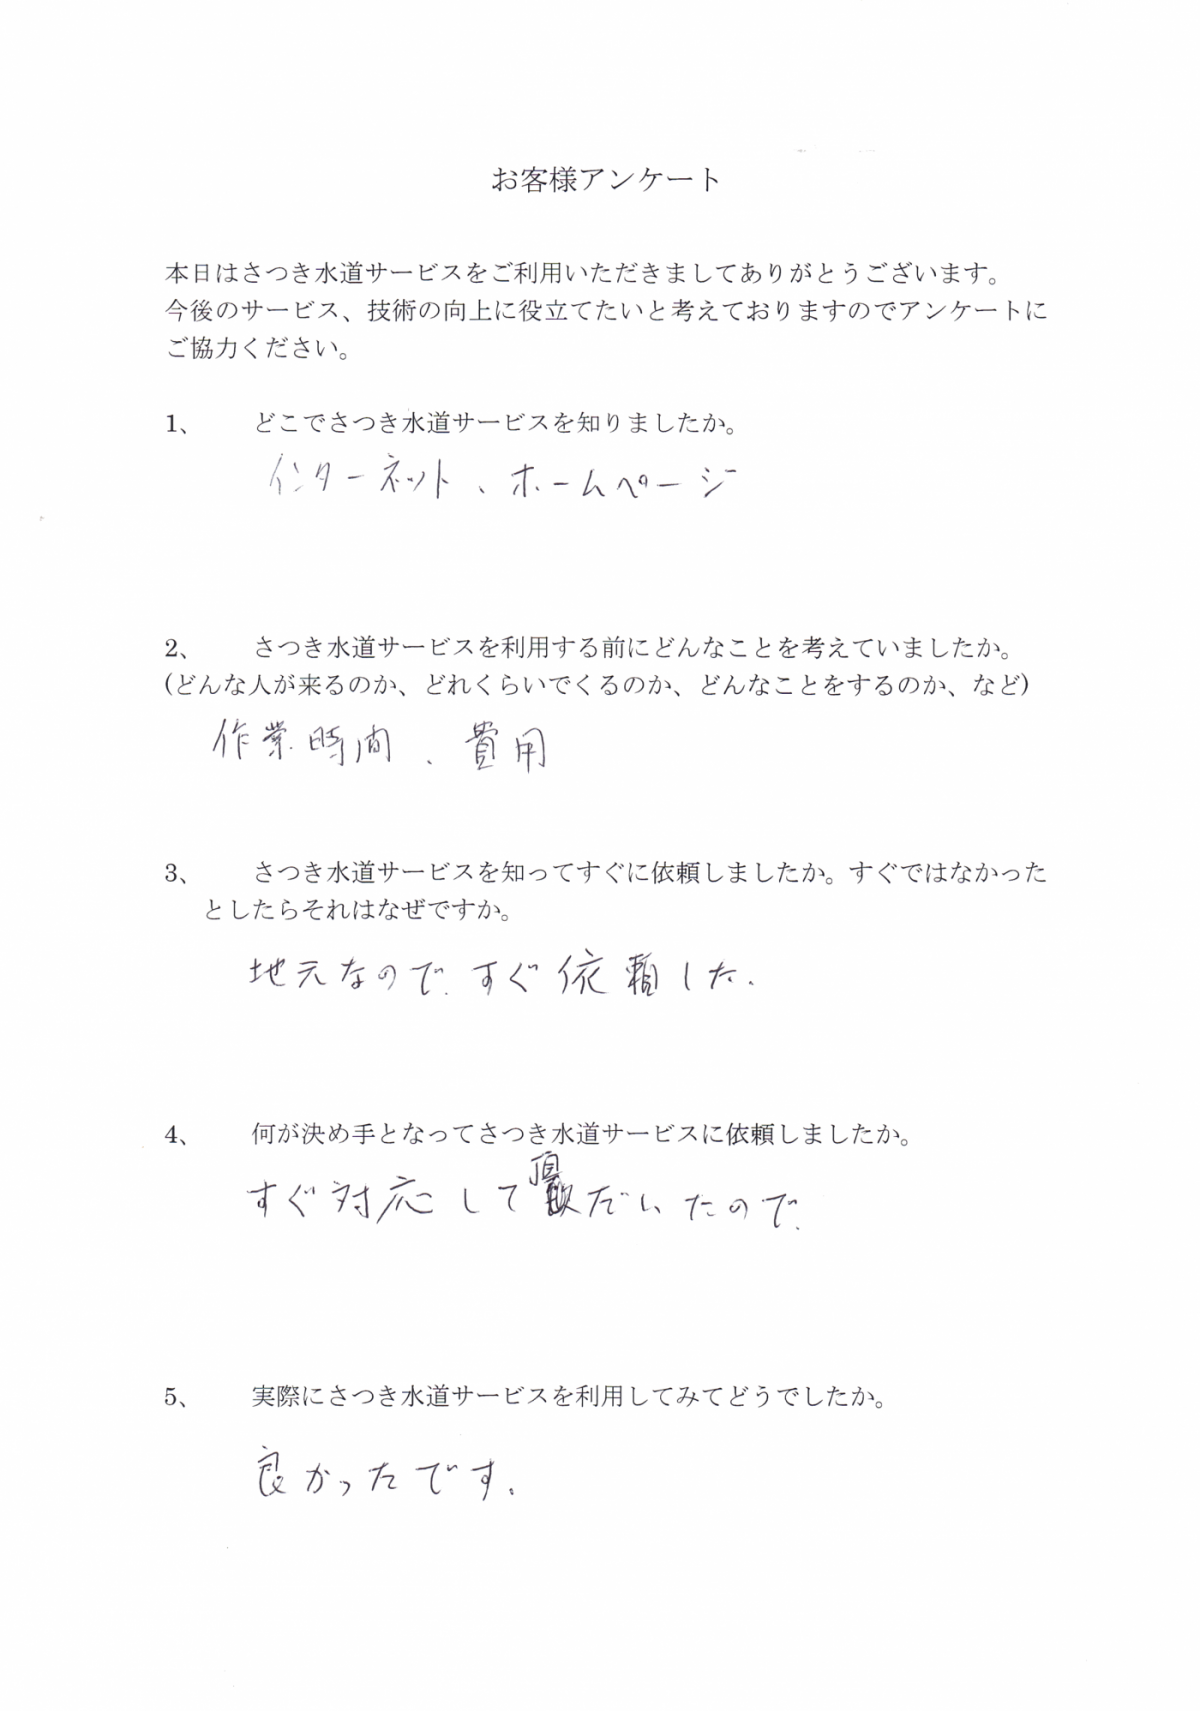 お客様アンケート
本日はさつき水道サービスをご利用いただきましてありがとうございます。
今後のサービス、技術の向上に役立てたいと考えておりますのでアンケートに
ご協力ください。
1、 どこでさつき水道サービスを知りましたか。
インターネット、ホームページ
2、 さつき水道サービスを利用する前にどんなことを考えていましたか。
(どんな人が来るのか、どれくらいでくるのか、どんなことをするのか、など)
作業時間、費用
3、 さつき水道サービスを知ってすぐに依頼しましたか。すぐではなかった
としたらそれはなぜですか。
地元なので、すぐ依頼した.
4、 何が決め手となってさつき水道サービスに依頼しましたか。
すぐ対応して頂だいたので.
5、 実際にさつき水道サービスを利用してみてどうでしたか。
良かったです.